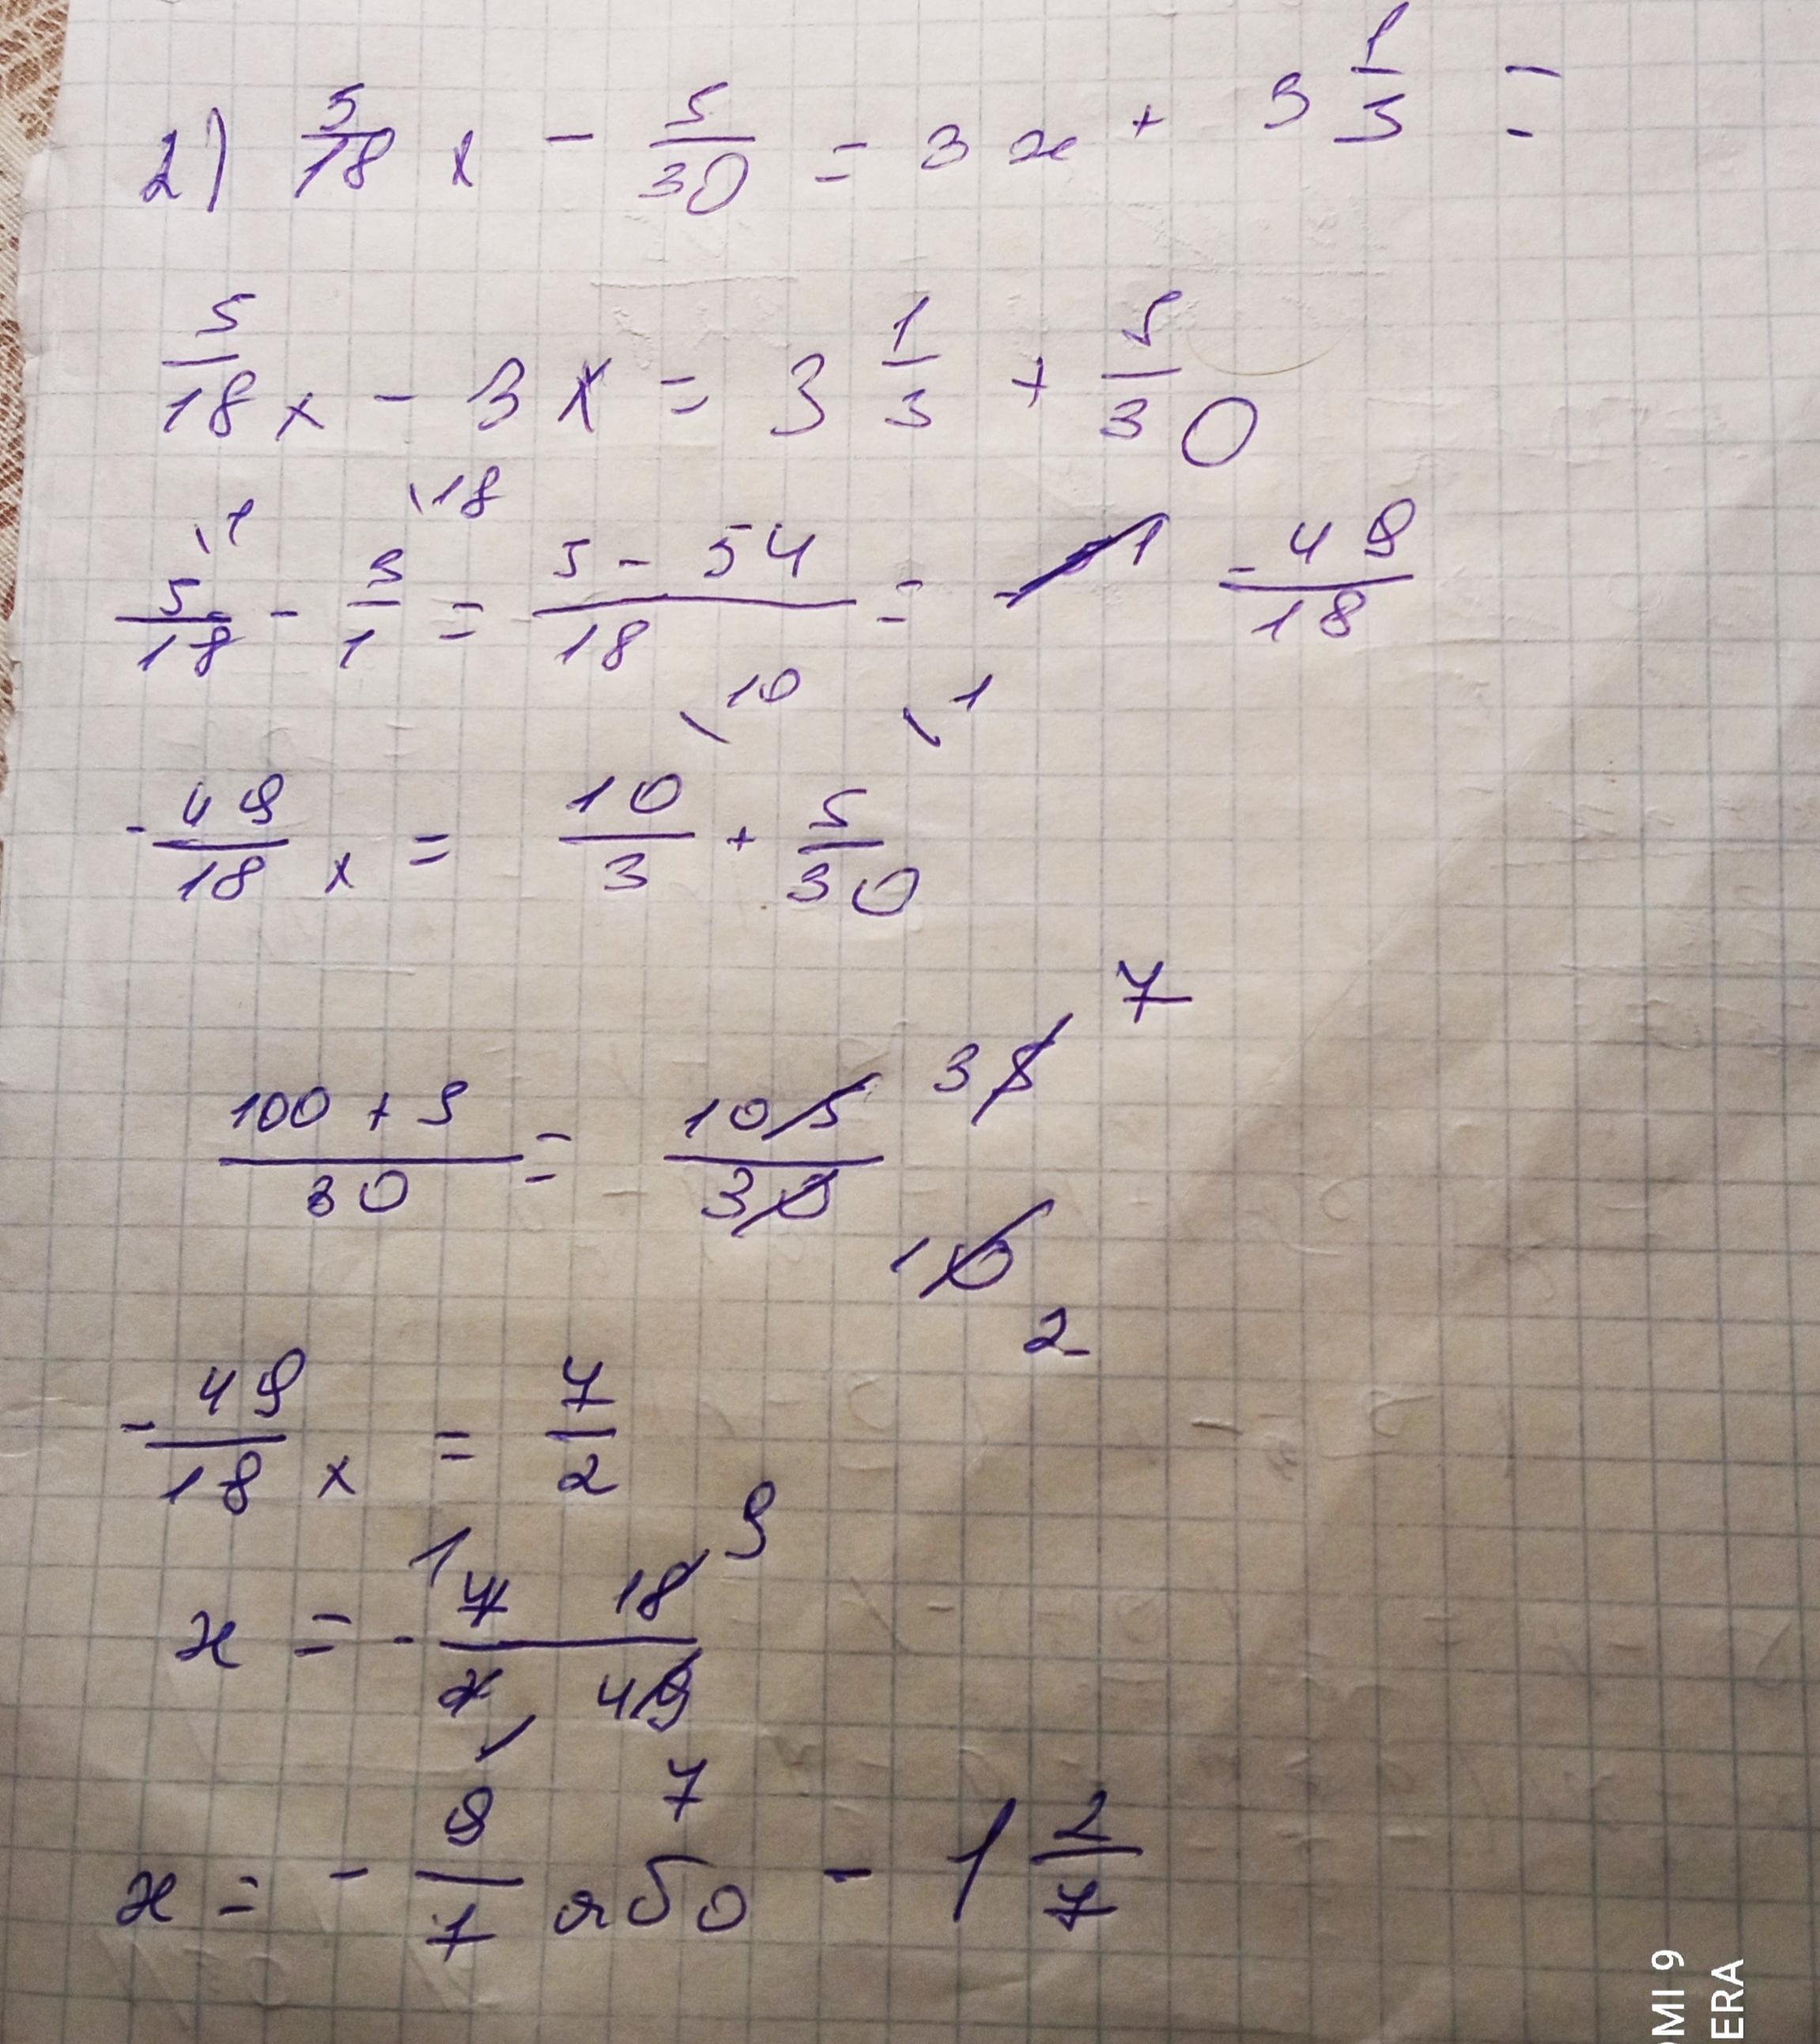 2) 5/18 x - 5/30 = 3x + 3 1/3 =
5/18 x - 3x = 3 1/3 + 5/30
5/18 \1 - 3/1 \18 = 5 - 54/18 = -49/18
-49/18 x = 10/3 \10 + 5/30 \1
100 + 5/30 = 105/30 35 7
10 2
-49/18 x = 7/2
x = - 1 7 18 9/2 1 49 7
x = - 9/7 або - 1 2/7
MI 9
ERA